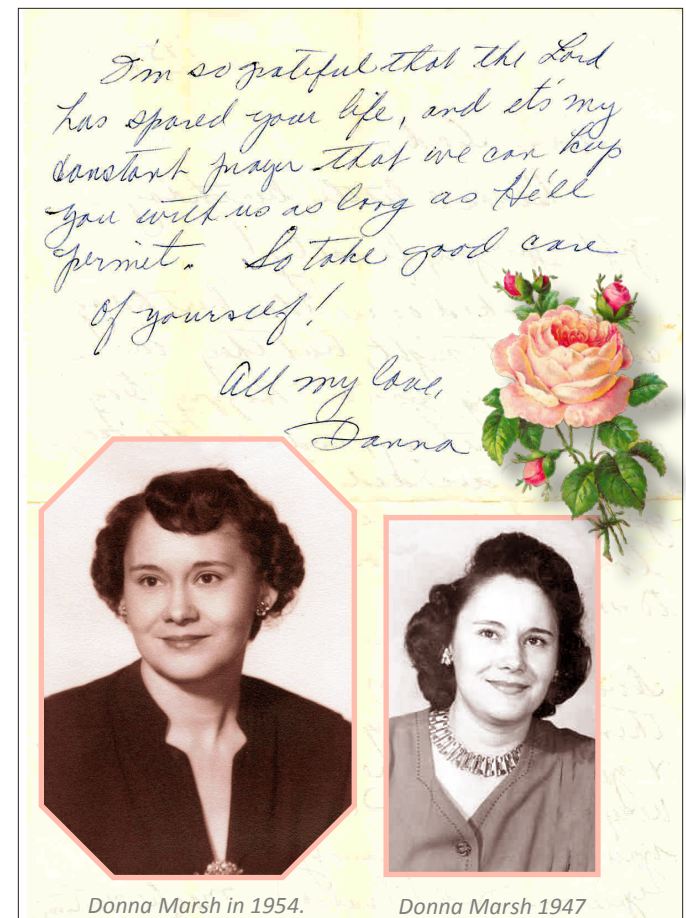 I'm so grateful that the Lord
has spared your life, and it's my
constant prayer that we can keep
you with us as long as He'll
permit. So take good care
of yourself!
All my love,
Donna
Donna Marsh in 1954.
Donna Marsh 1947